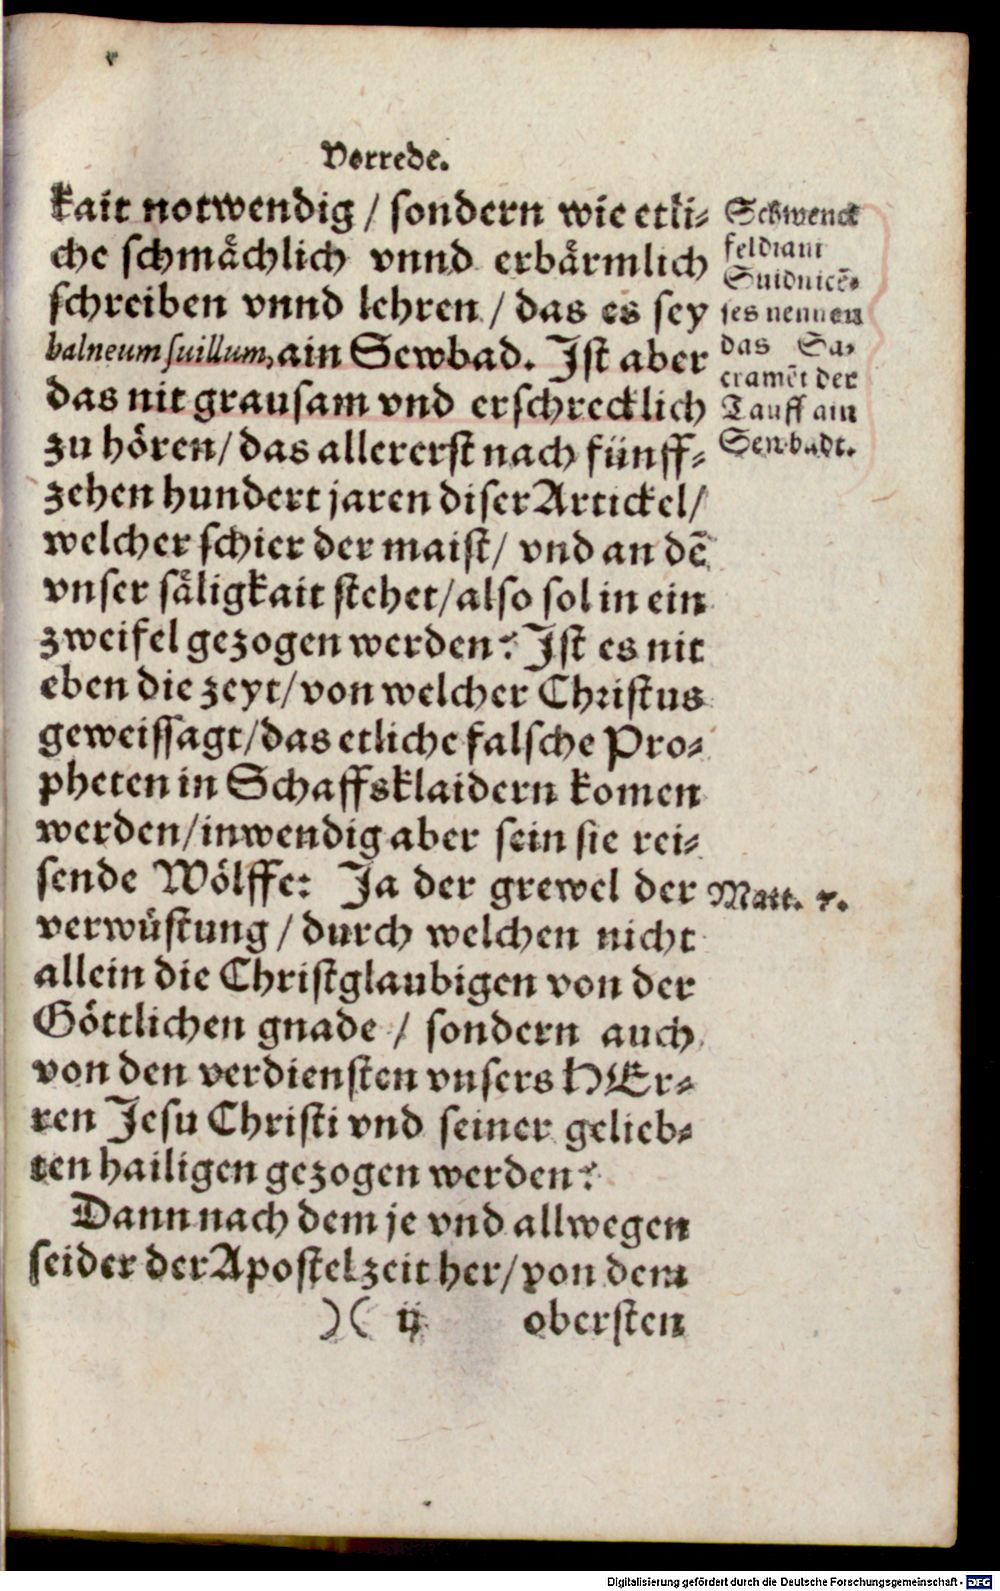 Vorrede.
kait notwendig / sondern wie etli⸗
che schmächlich vnnd erbärmlich
schreiben vnnd lehren / das es sey
balneum suillum, ain Sewbad. Ist aber
das nit grausam vnd erschrecklich
zu hören / das allererst nach fünff⸗
zehen hundert jaren diser Artickel /
welcher schier der maist / vnd an dē
vnser säligkait stehet / also sol in ein
zweifel gezogen werden? Ist es nit
eben die zeyt / von welcher Christus
geweissagt / das etliche falsche Pro⸗
pheten in Schaffsklaidern komen
werden / inwendig aber sein sie rei⸗
sende Wölffe: Ja der grewel der
verwüstung / durch welchen nicht
allein die Christglaubigen von der
Göttlichen gnade / sondern auch
von den verdiensten vnsers HEr⸗
ren Jesu Christi vnd seiner gelieb⸗
ten hailigen gezogen werden?
Dann nach dem je vnd allwegen
seider der Apostel zeit her / von dem
)( ij obersten
Schwenck
feldiani
Suidnicē⸗
ses nennen
das Sa⸗
cramēt der
Tauff ain
Sewbadt.
Matt. 7.
Digitalisierung gefördert durch die Deutsche Forschungsgemeinschaft - DFG